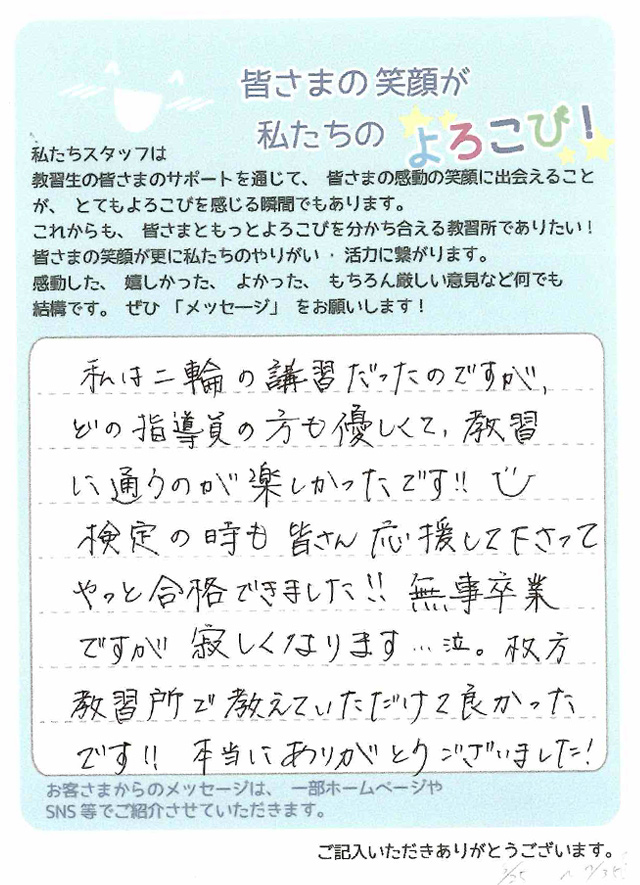 皆さまの笑顔が
私たちの よろこび！
私たちスタッフは
教習生の皆さまのサポートを通じて、皆さまの感動の笑顔に出会えること
が、とてもよろこびを感じる瞬間でもあります。
これからも、皆さまともっとよろこびを分かち合える教習所でありたい！
皆さまの笑顔が更に私たちのやりがい・活力に繋がります。
感動した、嬉しかった、よかった、もちろん厳しい意見など何でも
結構です。ぜひ「メッセージ」をお願いします！
私は二輪の講習だったのですが、
どの指導員の方も優しくて、教習
に通うのが楽しかったです!!
検定の時も皆さん応援して下さって
やっと合格できました!! 無事卒業
ですが寂しくなります…泣。枚方
教習所で教えていただけて良かった
です!! 本当にありがとうございました!
お客さまからのメッセージは、一部ホームページや
SNS等でご紹介させていただきます。
ご記入いただきありがとうございます。